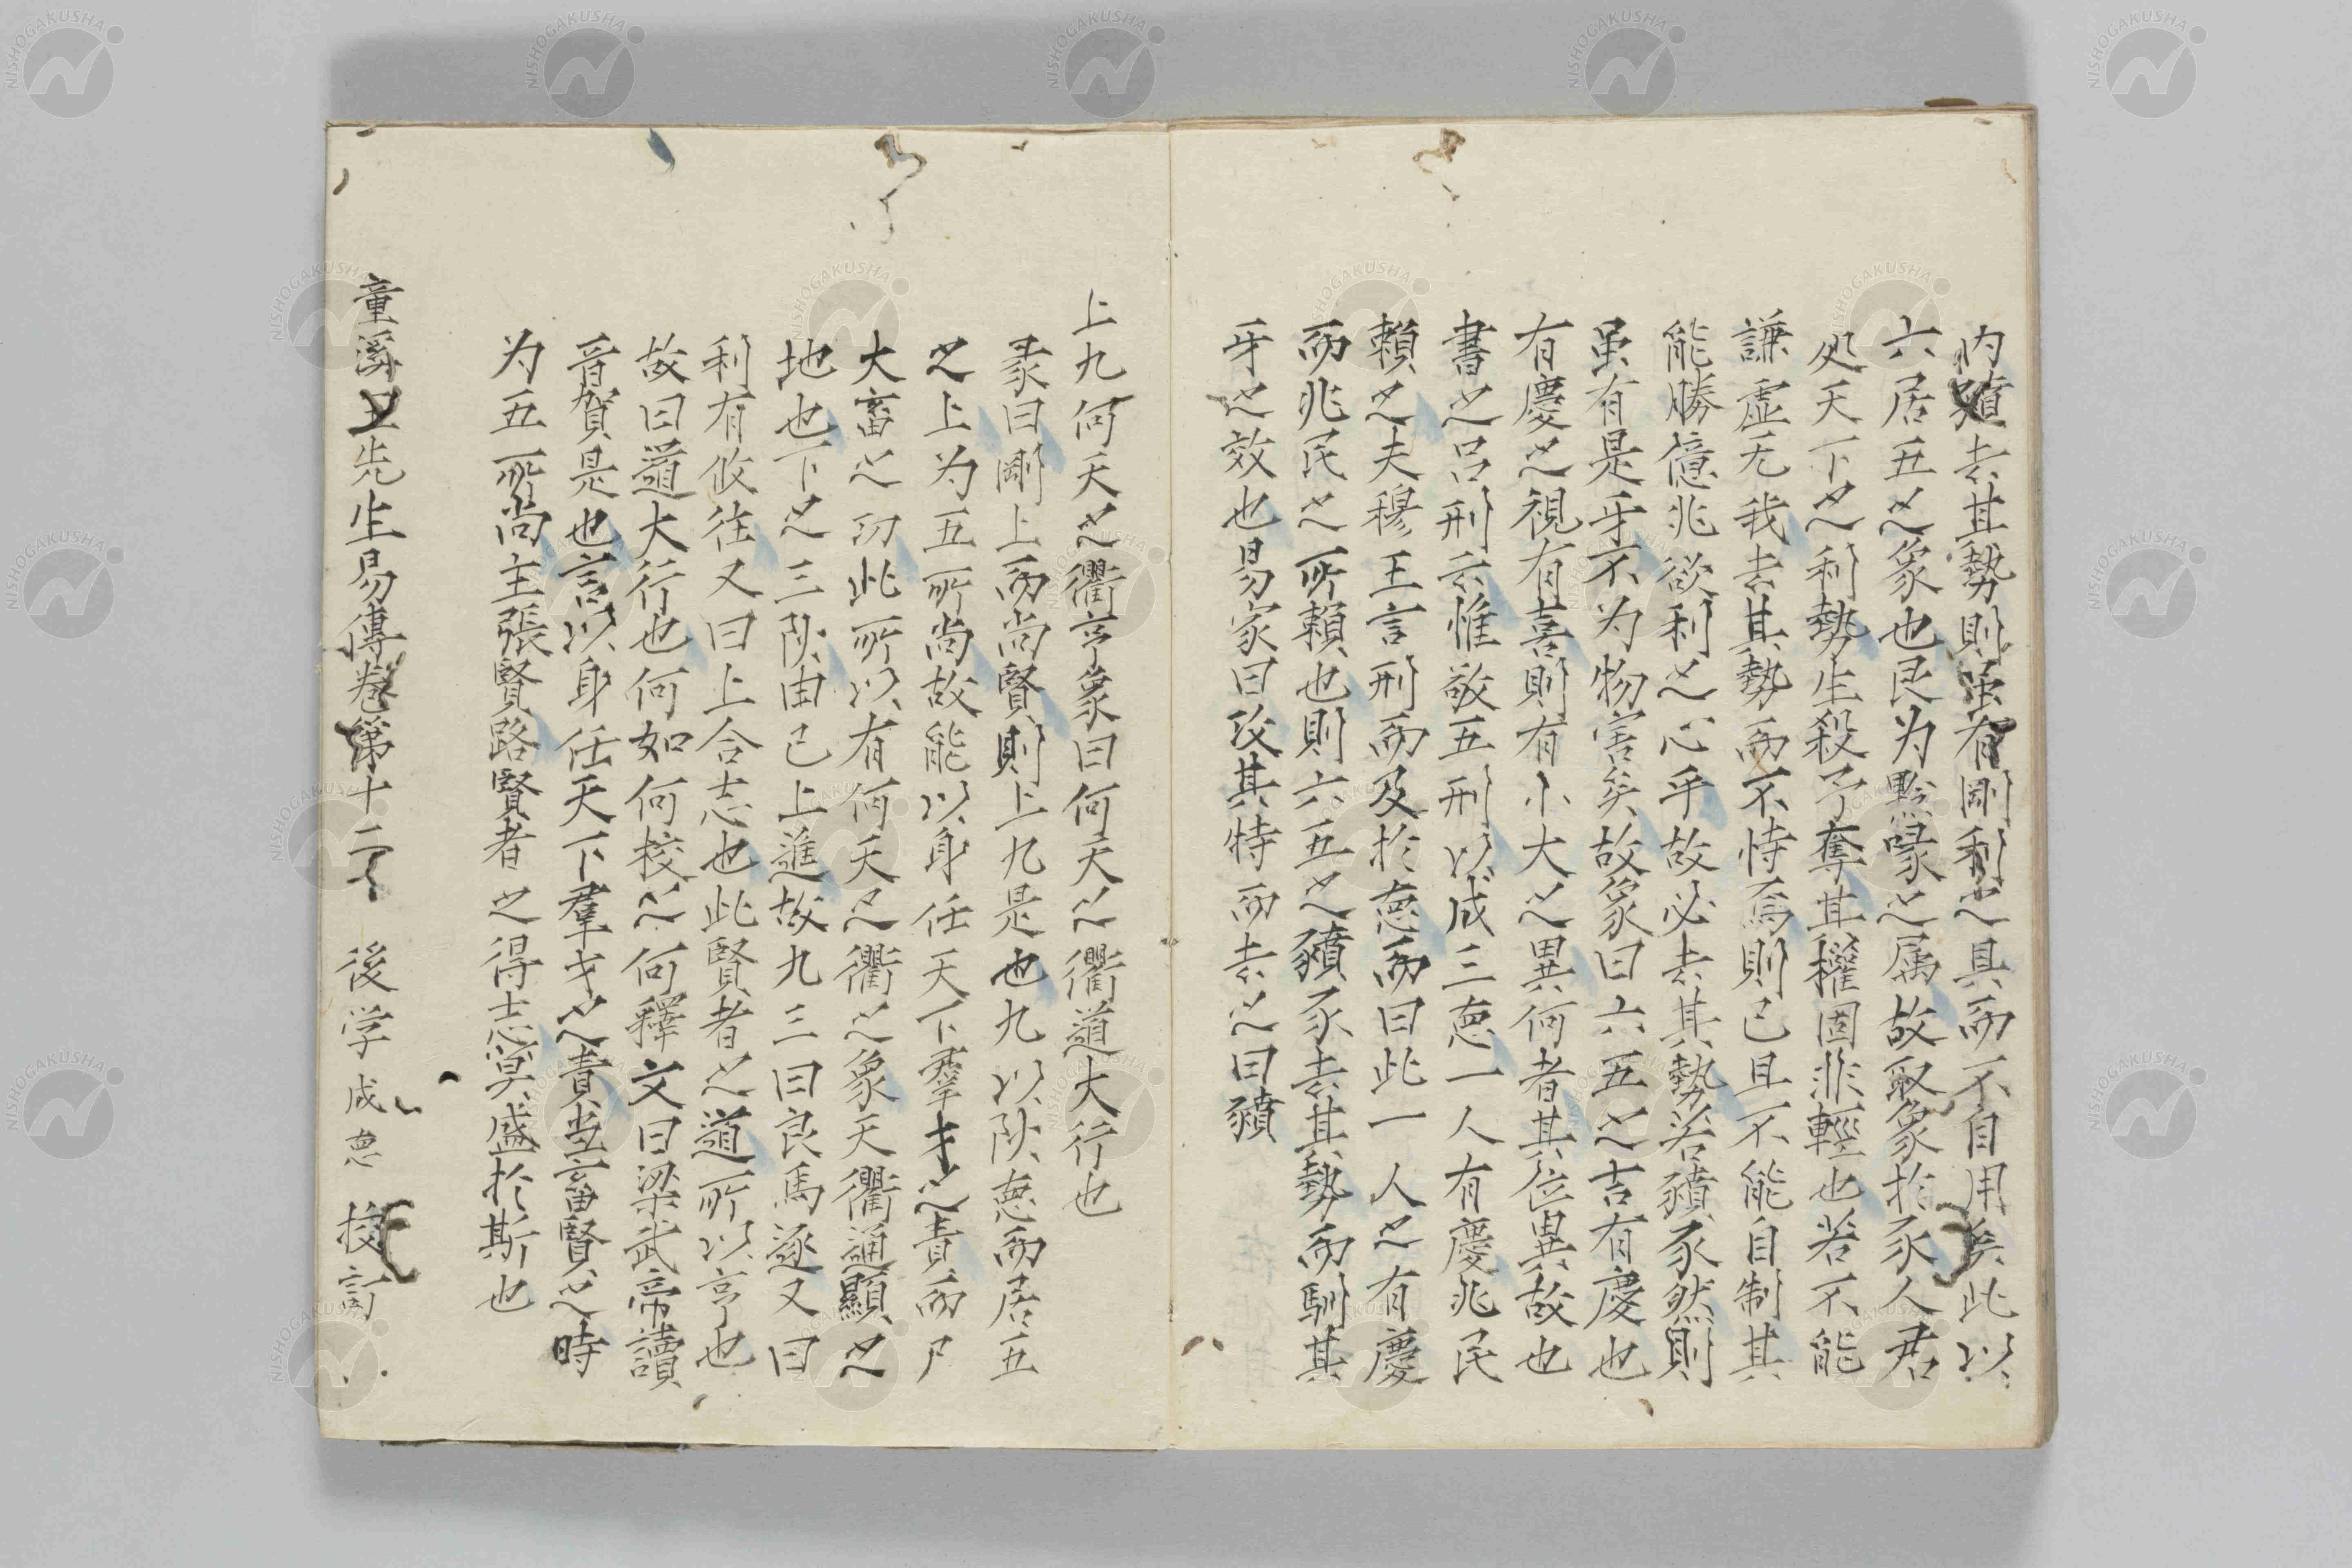 内豶去其勢則虽有剛利之具而不自用矣此以
六居五之象也艮为黔喙之属故取象扵豕人君
处天下之利勢生殺予奪其權固非輕也若不能
謙虚无我去其勢而不恃焉則已且不能自制其
能勝億兆欲利之心乎故必去其勢若豶豕然則
虽有是牙不为物害矣故象曰六五之吉有慶也
有慶之視有喜則有小大之異何者其位異故也
書之吕刑云惟敬五刑以成三悳一人有慶兆民
頼之夫穆王言刑而及扵悳而曰此一人之有慶
而兆民之所頼也則六五之豶豕去其勢而馴其
牙之效也易家曰攻其特而去之曰豶
上九何天之衢亨象曰何天之衢道大行也
彖曰剛上而尚賢則上九是也九以阦悳而居五
之上为五所尚故能以身任天下羣才之責而尸
大畜之功此所以有何天之衢之象天衢通顯之
地也下之三阦由已上進故九三曰良馬逐又曰
利有攸往又曰上合志也此賢者之道所以亨也
故曰道大行也何如何校之何釋文曰梁武帝讀
音賀是也言以身任天下羣才之責当畜賢之時
为五所尚主張賢路賢者之得志冥盛扵斯也
童溪王先生易傳卷第十二
後学成悳校訂
NISHOGAKUSHA